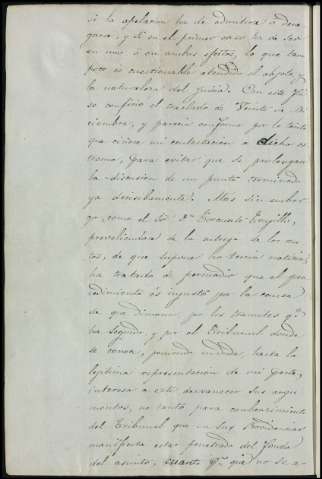 si la apelacion ha de admitirse ó dene
garse, y si en el primer caso ha de ser
en uno ó en ambos efectos, lo que tam
poco es cuestionable atendido el objeto y
la naturaleza del juicio. Con este fin
se confirió el traslado de veinte de Di
ciembre, y parecia conforme por lo tanto
que ciñera mi contestacion á dicho es
tremo, para evitar que se prolongara
la discusion de un punto terminado
ya definitivamente. Mas sin embar
go, como el Sor. Dn.
prevaliéndose de la entrega de los au
tos, de que supone ha tenido noticia,
ha tratado de persuadir que el pro
cedimiento es injusto por la causa
de que dimana, por los tramites qe.
ha seguido, y por el Tribunal donde
se conoce, poniendo en duda, hasta la
legítima representacion de mi parte,
interesa á esta desvanecer sus argu
mentos, no tanto para convencimiento
del Tribunal que en sus Providencias
manifiesta estar penetrado del fondo
del asunto, cuanto pr. que no se a-